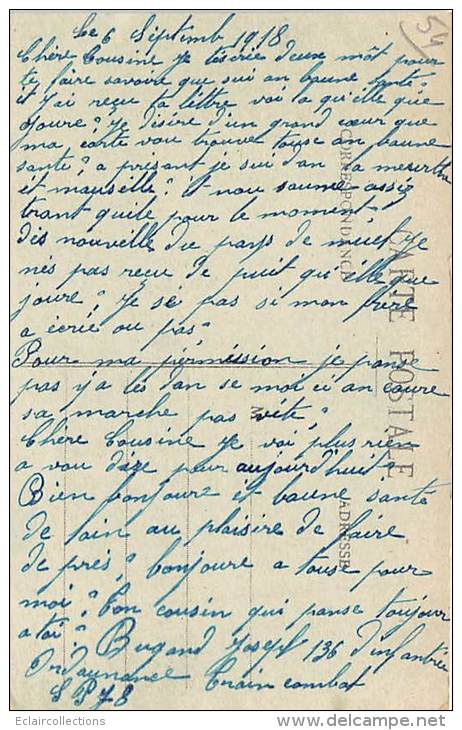 Le 6 Septemb 1918
Chère Cousine Je técrie deux môt pour
te faire savoire que sui an baune santé
it j'ai reçu ta lêttre voi la qu'elle que
Joure? Je désire d'un grand cœur que
ma carte vou trouve touse an baune
santé? a présant je sui dan la meurthe
et mauselle? it nou saume assiz
trant quile pour le moment
des nouvelle du pays de nuet Je
nés pas reçu de puit qu'elle que
joure? Je sé pas si mon frère
a écrié ou pas
Pour ma pèrmission je panse
pas y a lés dan se moi ci an coure
sa marche pas vite?
Chère Cousine Je voi plus rien
a vou dire pour aujourd'huit?
Bien bonjoure et baune santé
de loin au plaisire de faire
de près? bonjoure a touse pour
moi? Ton cousin qui panse toujour
a toi? Bugand Joseph 136 d'infantrie
Ordaunance Train combat
S P 78
54
CORRESPONDANCE
CARTE POSTALE
M
ADRESSE
Eclaircollections